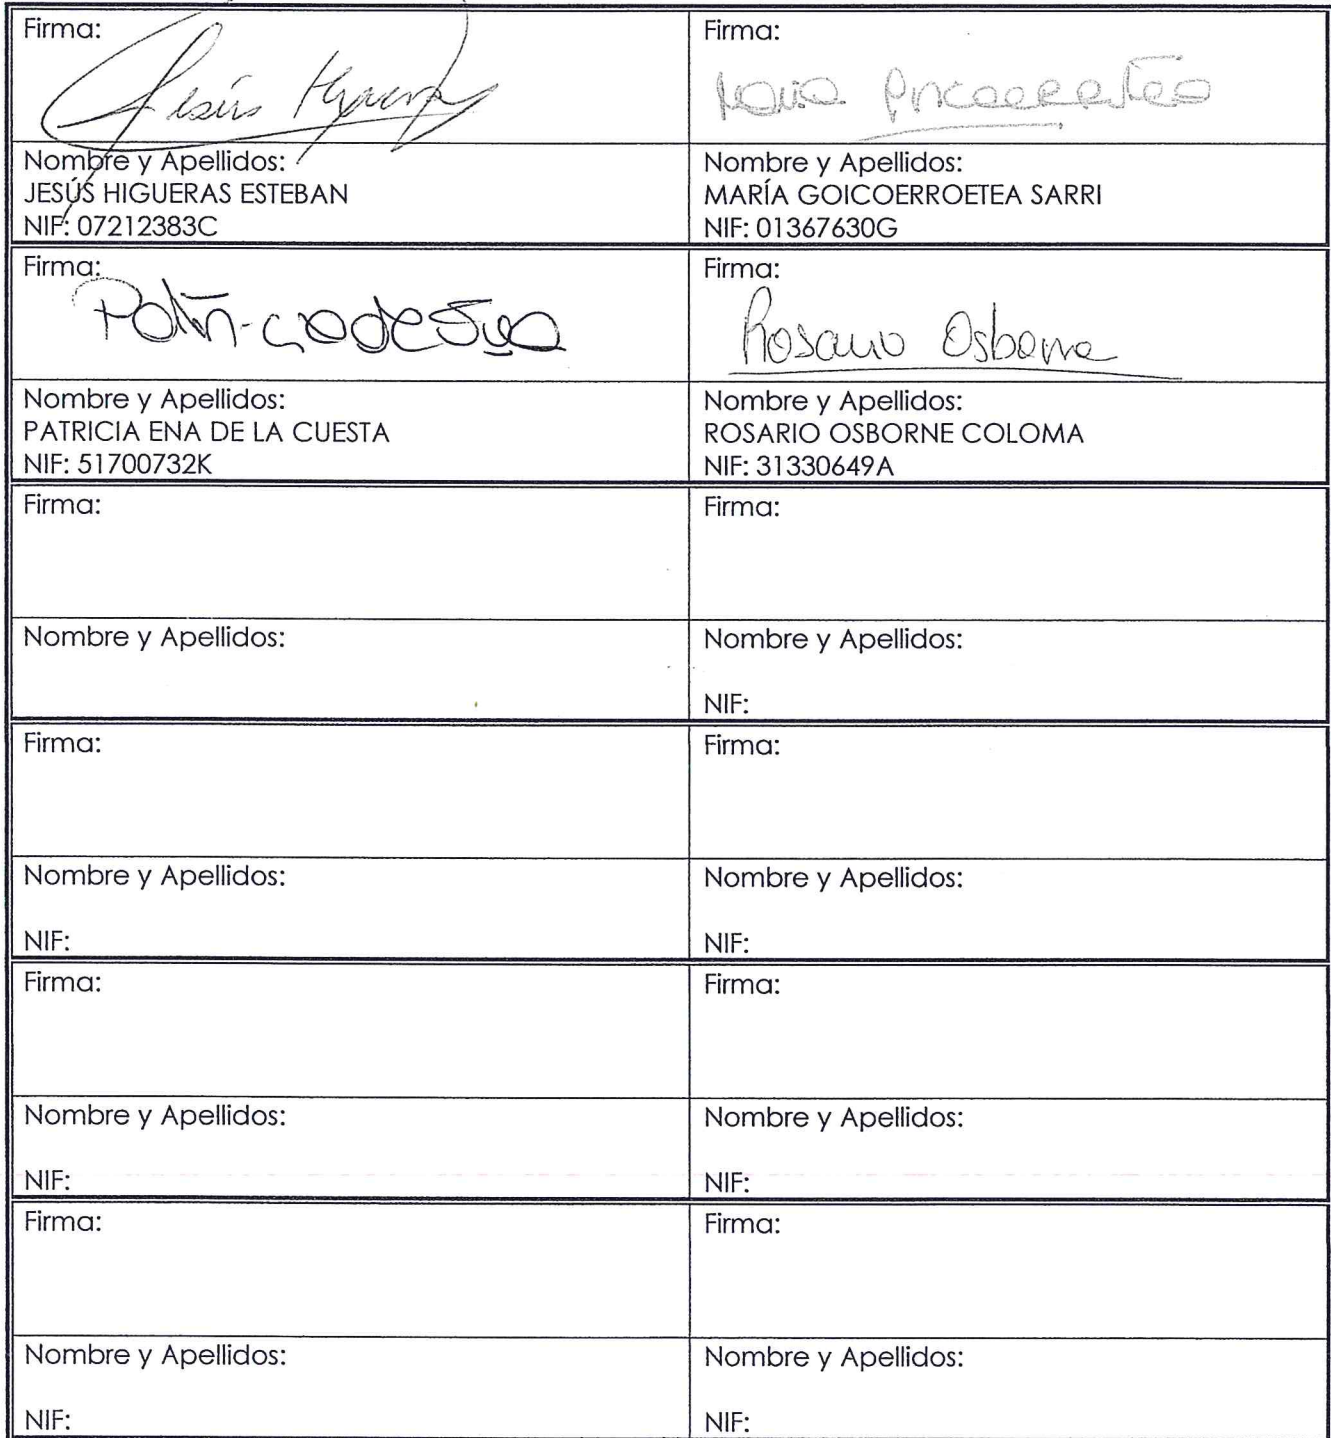 Firma:
Jesús Higueras
Firma:
María Goicoerrotea
Nombre y Apellidos:
JESÚS HIGUERAS ESTEBAN
NIF: 07212383C
Nombre y Apellidos:
MARÍA GOICOERROETEA SARRI
NIF: 01367630G
Firma:
Firma:
Rosario Osborne
Nombre y Apellidos:
PATRICIA ENA DE LA CUESTA
NIF: 51700732K
Nombre y Apellidos:
ROSARIO OSBORNE COLOMA
NIF: 31330649A
Firma:
Firma:
Nombre y Apellidos:
Nombre y Apellidos:
NIF:
Firma:
Firma:
Nombre y Apellidos:
NIF:
Nombre y Apellidos:
NIF:
Firma:
Firma:
Nombre y Apellidos:
NIF:
Nombre y Apellidos:
NIF:
Firma:
Firma:
Nombre y Apellidos:
NIF:
Nombre y Apellidos:
NIF: